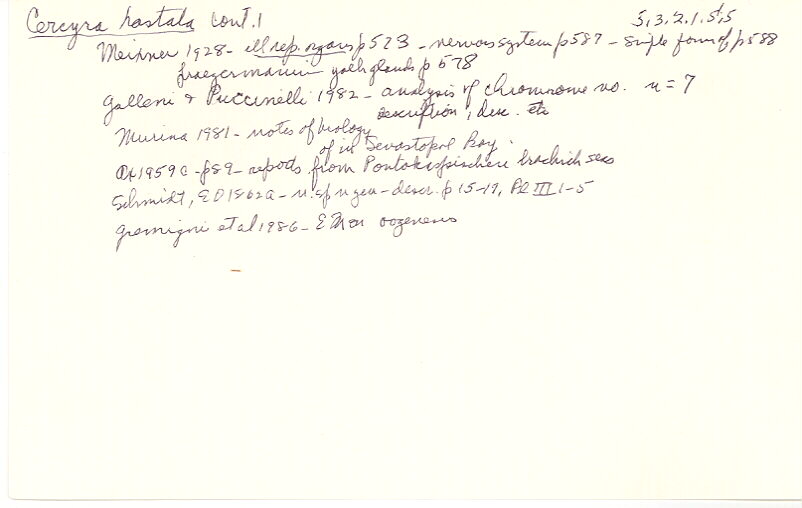 Cercyra hastata cont. 1 5,3,2,1,5,5
Meixner 1928 - ill rep. organs p 573 - nervous system p 587 - single form of p 588
yolk glands p 578
Galleni & Puccinelli 1982 - analysis of chromosome no. n = 7
description, disc. etc
Murina 1981 - notes of biology
of it Sevastopol Bay.
Ax 1959a - p89 - reports from Pontokaspischere brackish seas
Schmidt, E O 1862a - n. sp n gen - descr. p 15-17, Pl III 1-5
Gremigni et al 1986 - E Mcr oogenesis